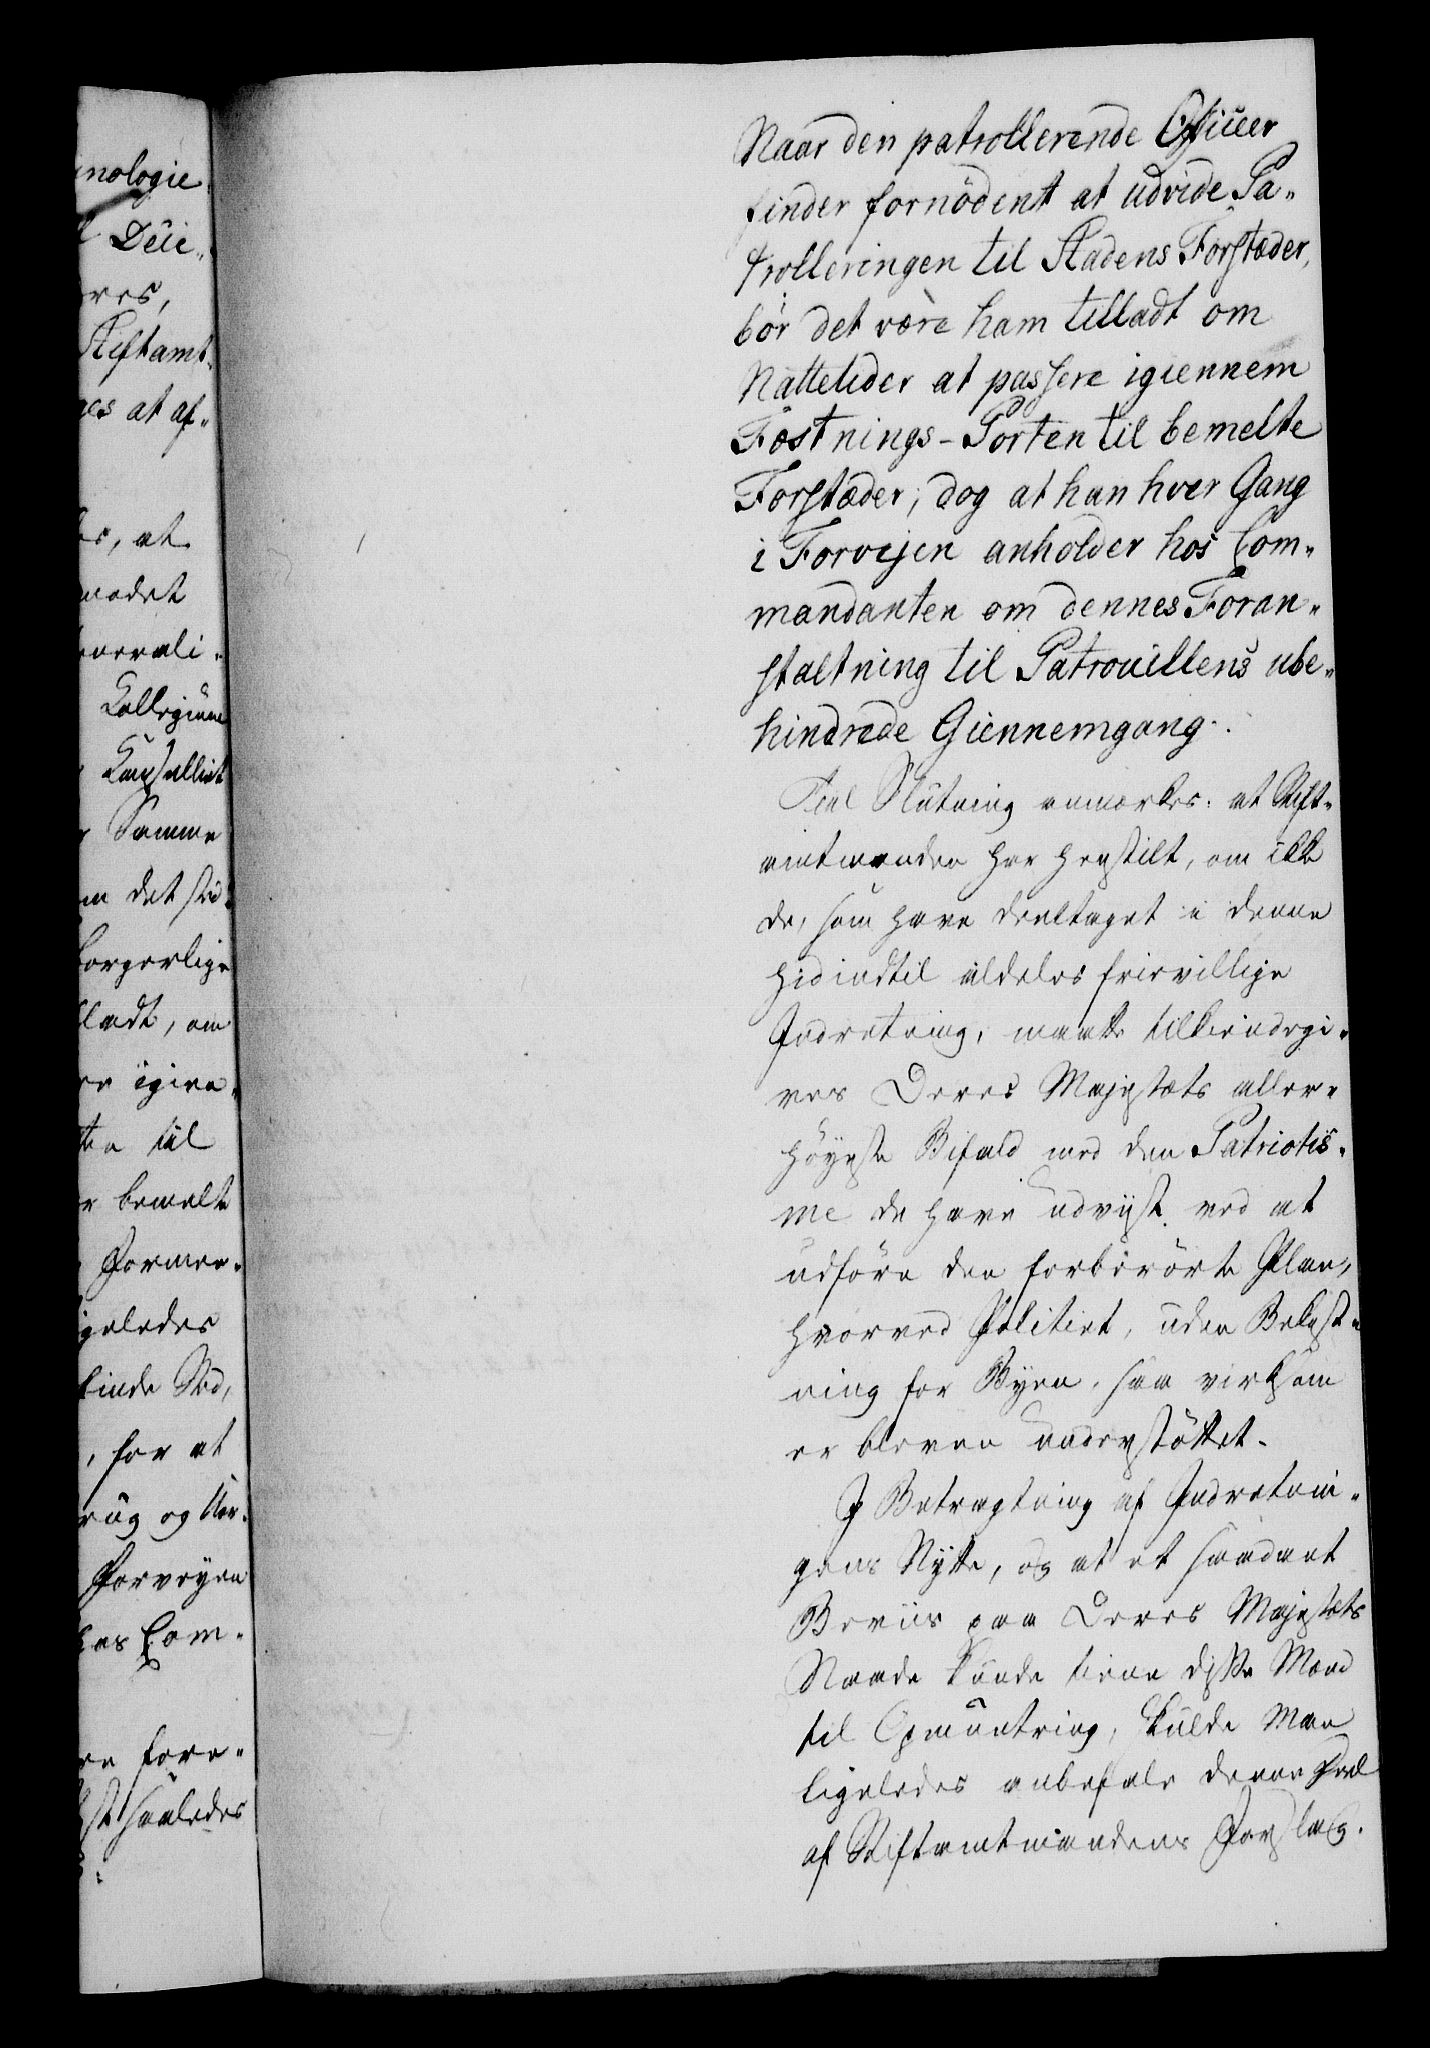 nologie
Deü-
res,
Stiftamt-
es at af-
, at
modet
enerali-
Collegium
Cancelliet
Samme
m det stri-
borgerlige
ladt, om
re igien-
ten til
r bemelte
Former-
geledes
finde Sted,
, for at
rüg og Uor-
Forvejen
hos Com-
re fore-
st saaledes
Naar den patrollerende Officer
finder fornödent at udvide Pa-
trolleringen til Stadens Forstæder,
bör det være ham tilladt om
Nattetider at passere igiennem
Fæstnings-Porten til bemelte
Forstæder; dog at han hver Gang
i Forvejen anholder hos Com-
mandanten om dennes Foran-
staltning til Patrouillens ube-
hindrede Giennemgang.
Til Slutning anmærkes: at Stift-
amtmanden har henstilt, om ikke
de, som have deeltaget i denne
hidindtil aldeles frievillige
Indretning, maatte tilkiendegi-
ves Deres Majestæts aller-
höyeste Bifald med den Patriotis-
me de have udviist ved at
udföre den forberörte Plan,
hvorved Politiet, uden Bekost-
ning for Byen, saa virksom
er bleven understöttet.
I Betragtning af Indretnin-
gens Nytte, og at et saadant
Beviis paa Deres Majestæts
Naade kunde tiene disse Mænd
til Opmuntring, skulde Man
ligeledes anbefale denne Deel
af Stiftamtmandens Forslag.